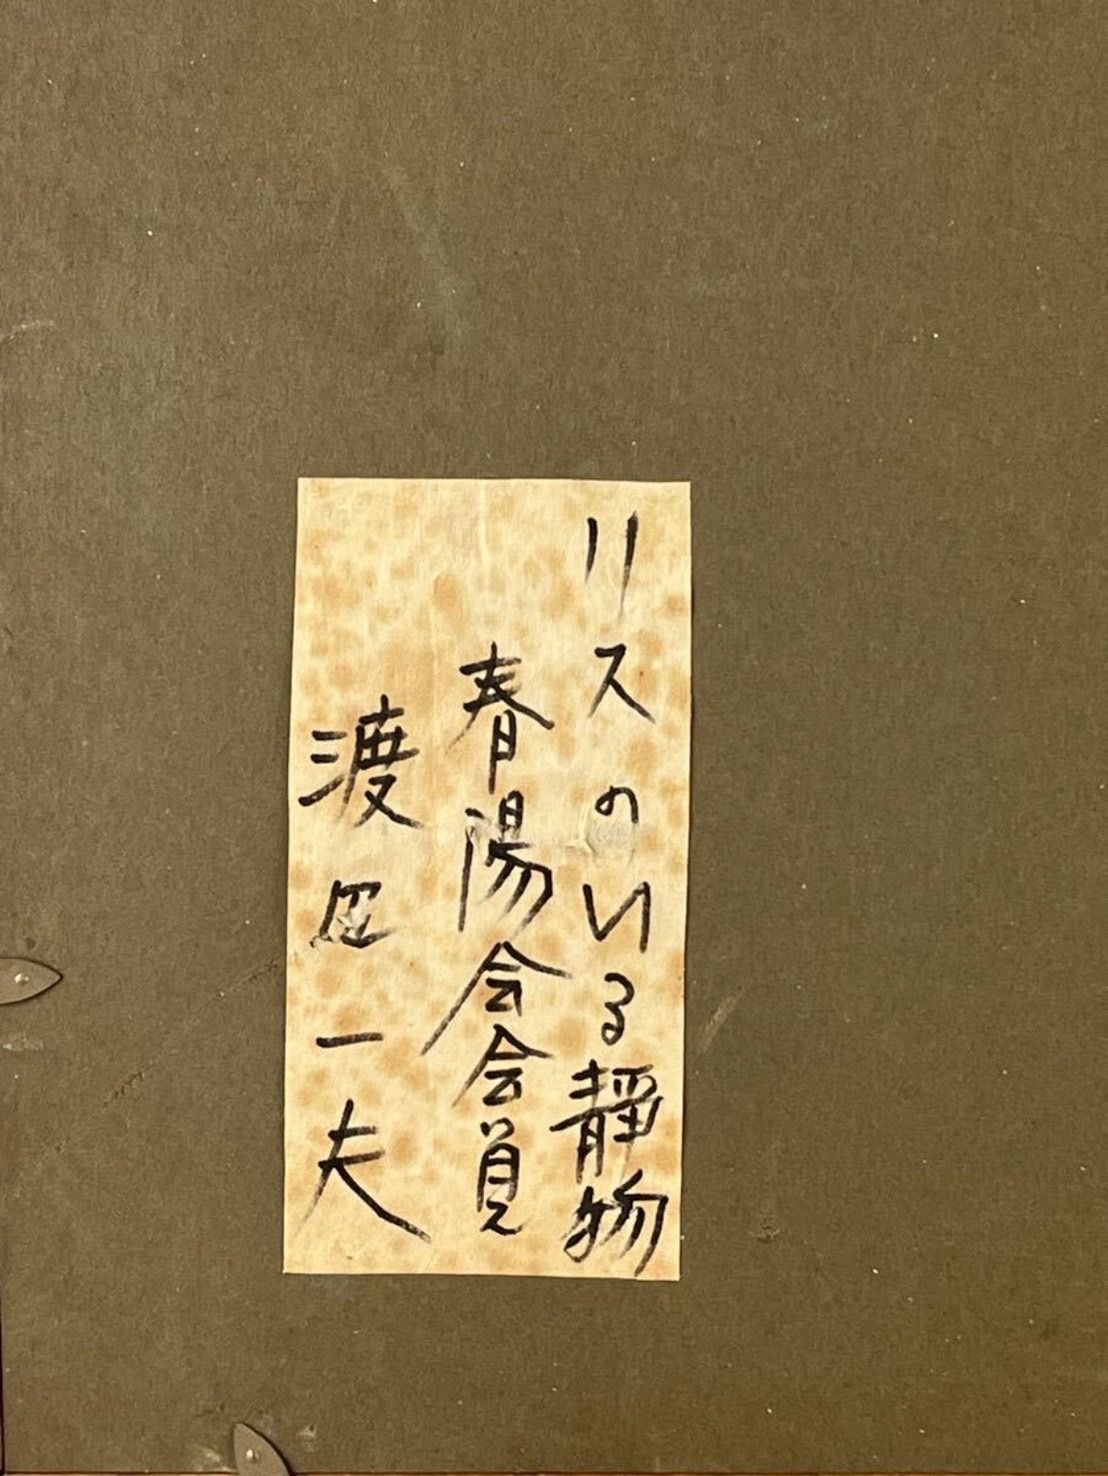 リスのいる静物
春陽会会員
渡辺一夫